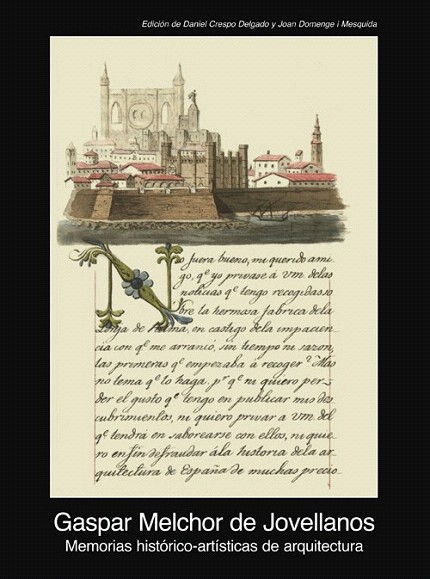 Edición de Daniel Crespo Delgado y Joan Domenge i Mesquida
No fuera bueno, mi querido ami-
go, qe yo privase á Vm. delas
noticias qe tengo recogidas so
bre la hermosa fabrica dela
Lonja de Palma, en castigo dela impacien-
cia con qe me arrancó, sin tiempo ni sazon,
las primeras qe empezaba á recoger? Mas
no tema qe lo haga, pr qe ni quiero per-
der el gusto qe tengo en publicar mis des
cubrimientos, ni quiero privar a Vm. del
qe tendrá en saborearse con ellos, ni quie-
ro en fin defraudar á la historia dela ar-
quitectura de España de muchas precio-
Gaspar Melchor de Jovellanos
Memorias histórico-artísticas de arquitectura